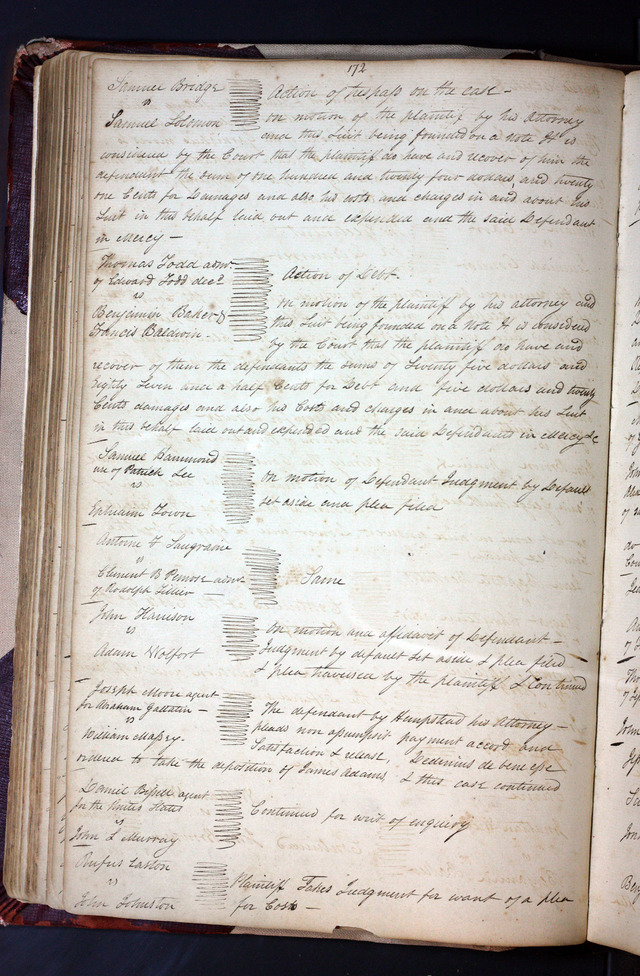 172
Samuel Bridge
vs
Samuel Solomon
Action of trespass on the case -
on motion of the plaintif by his Attorney
and this Suit being founded on a note It is
considered by the Court that the plaintif do have and recover of him the
defendant the sum of one hundred and twenty four dollars, and twenty
one Cents for Damages and also his costs and charges in and about his
Suit in this behalf laid out and expended and the said Defendant
in Mercy -
Thomas Todd admr.
of Edward Todd decd.
vs
Benjamin Baker &
Francis Baldwin -
Action of Debt.
On motion of the plaintif by his attorney and
this Suit being founded on a note It is considered
by the Court that the plaintif do have and
recover of them the defendants the sums of Seventy five dollars and
Eighty Seven and a half Cents for Debt and five dollars and twenty
Cents damages and also his Costs and charges in and about his Suit
in this behalf laid out and expended and the said Defendants in Mercy &c
Samuel Hammond
use of Patrick Lee
vs
Ephraim Town
On motion of Defendant Judgment by Default
set aside and plea filed
Antoine F Saugraine
vs
Clement B Penrose admr
of Rodolph Tillier -
Same
John Harrison
vs
Adam Wolfort
On motion and affidavit of Defendant -
Judgment by default set aside & plea filed
& plea traversed by the plaintiff & Continued
Joseph Moore agent
for Abraham Gallatin -
vs
William Massey -
The defendant by Hempstead his Attorney -
pleads non assumpsit payment accord and
Satisfaction & release, Dedimus de bene esse
ordered to take the deposition of James Adams & this case continued
Daniel Bissell agent
for the United States
vs
John L Murray
Continued for writ of enquiry
Rufus Easton
vs
John Johnston
Plaintiff Takes Judgment for want of a plea
for Costs -